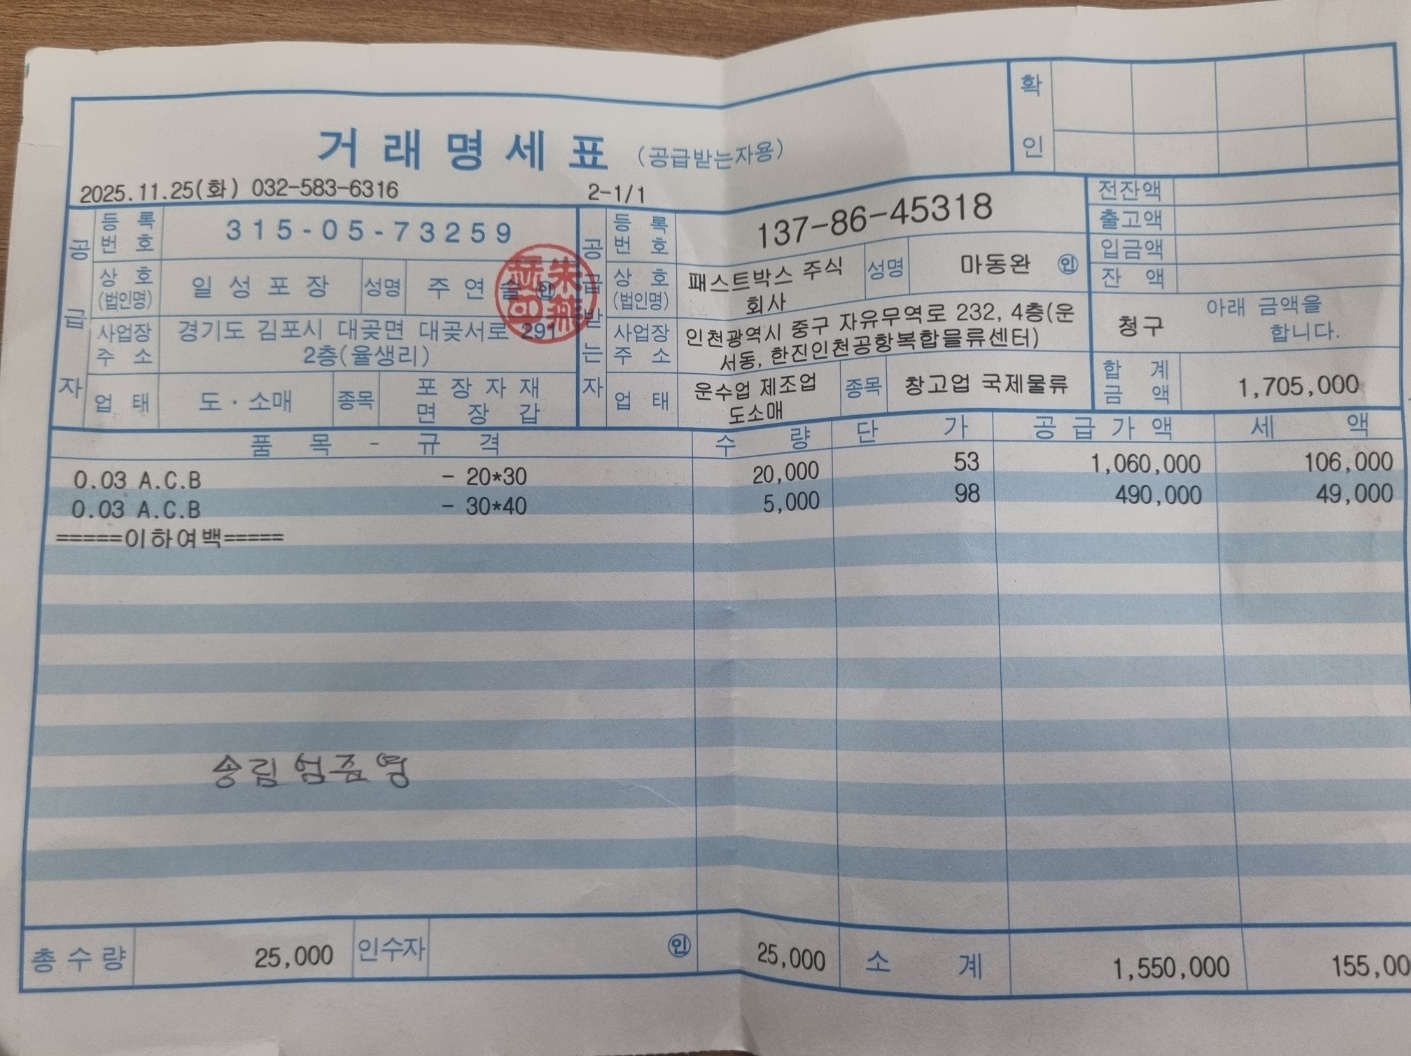 거래명세표 (공급받는자용)
확인
2025.11.25(화) 032-583-6316 2-1/1
공급자
등록번호 315-05-73259
상호(법인명) 일성포장 성명 주연술 ㊞
사업장주소 경기도 김포시 대곶면 대곶서로 291
2층(율생리)
업태 도·소매 종목 포장자재
면장갑
공급받는자
등록번호 137-86-45318
상호(법인명) 패스트박스 주식
회사 성명 마동완 ㊞
사업장주소 인천광역시 중구 자유무역로 232, 4층(운
서동, 한진인천공항복합물류센터)
업태 운수업 제조업
도소매 종목 창고업 국제물류
전잔액
출고액
입금액
잔액
청구 아래 금액을
합니다.
합계금액 1,705,000
품목 - 규격 수량 단가 공급가액 세액
0.03 A.C.B - 20*30 20,000 53 1,060,000 106,000
0.03 A.C.B - 30*40 5,000 98 490,000 49,000
=====이하여백=====
송림 엄준영
총수량 25,000 인수자 ㊞ 25,000 소계 1,550,000 155,00